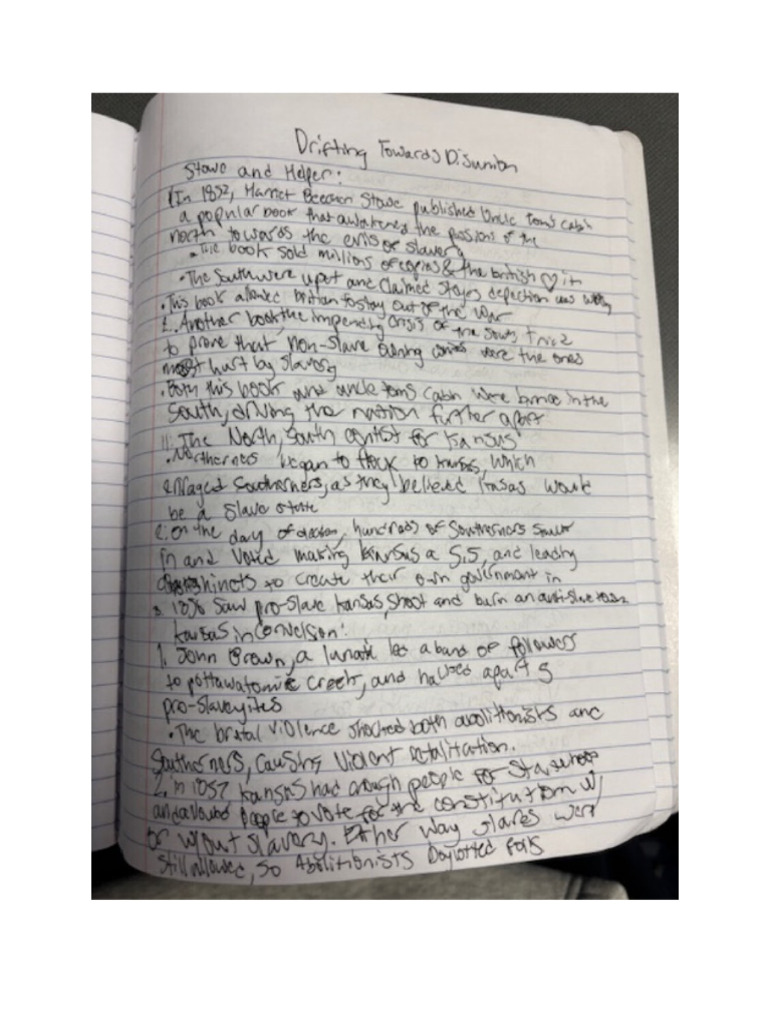 Drifting Towards Disunion
Stowe and Helper:
1 In 1852, Harriet Beecher Stowe published Uncle Tom's Cabin
a popular book that awakened the passions of the
north towards the evils of slavery
• The book sold millions of copies & the british ♡ it
• The South were upset and claimed Stowes depection was
• This book allowed britian to stay out of the war
2. Another book, the impending crisis of the South tried
to prove that non-slave owning were the ones
most hurt by slavery
• Both this book and uncle toms cabin were banned in the
South, driving the nation further apart
11. The North, South contist for Kansus
• Northerners began to flock to kansas, which
enraged Southerners, as they believed kansas would
be a slave state
2. On the day of election, hundreds of Southerners
in and voted making kansus a S.S, and leading
to create their own government in
3. 1856 saw pro-slave kansas, shoot and burn an anti-slave
Kansas in Convulsion:
1. John Brown, a lunatic led a band of followers
to pottawatomie Creek, and hacked apart 5
pro-slaveyites
• The brutal violence shocked both abolitionists and
Southerners, causing violent retalitation.
2. in 1857 kansas had enough people for statehood
and allowed people to vote for the constitution w/
or w/out slavery. Either way slaves were
still allowed, so Abolitionists Boycotted Polls